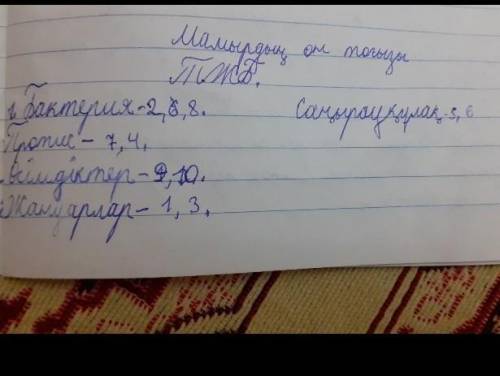 Мамырдың он тоғызы
ТЖБ.
1. Бактерия-2, 6, 8. Саңырауқұлақ-5, 6
Протис- 7, 4.
Өсімдіктер-9, 10.
Жануарлар- 1, 3.